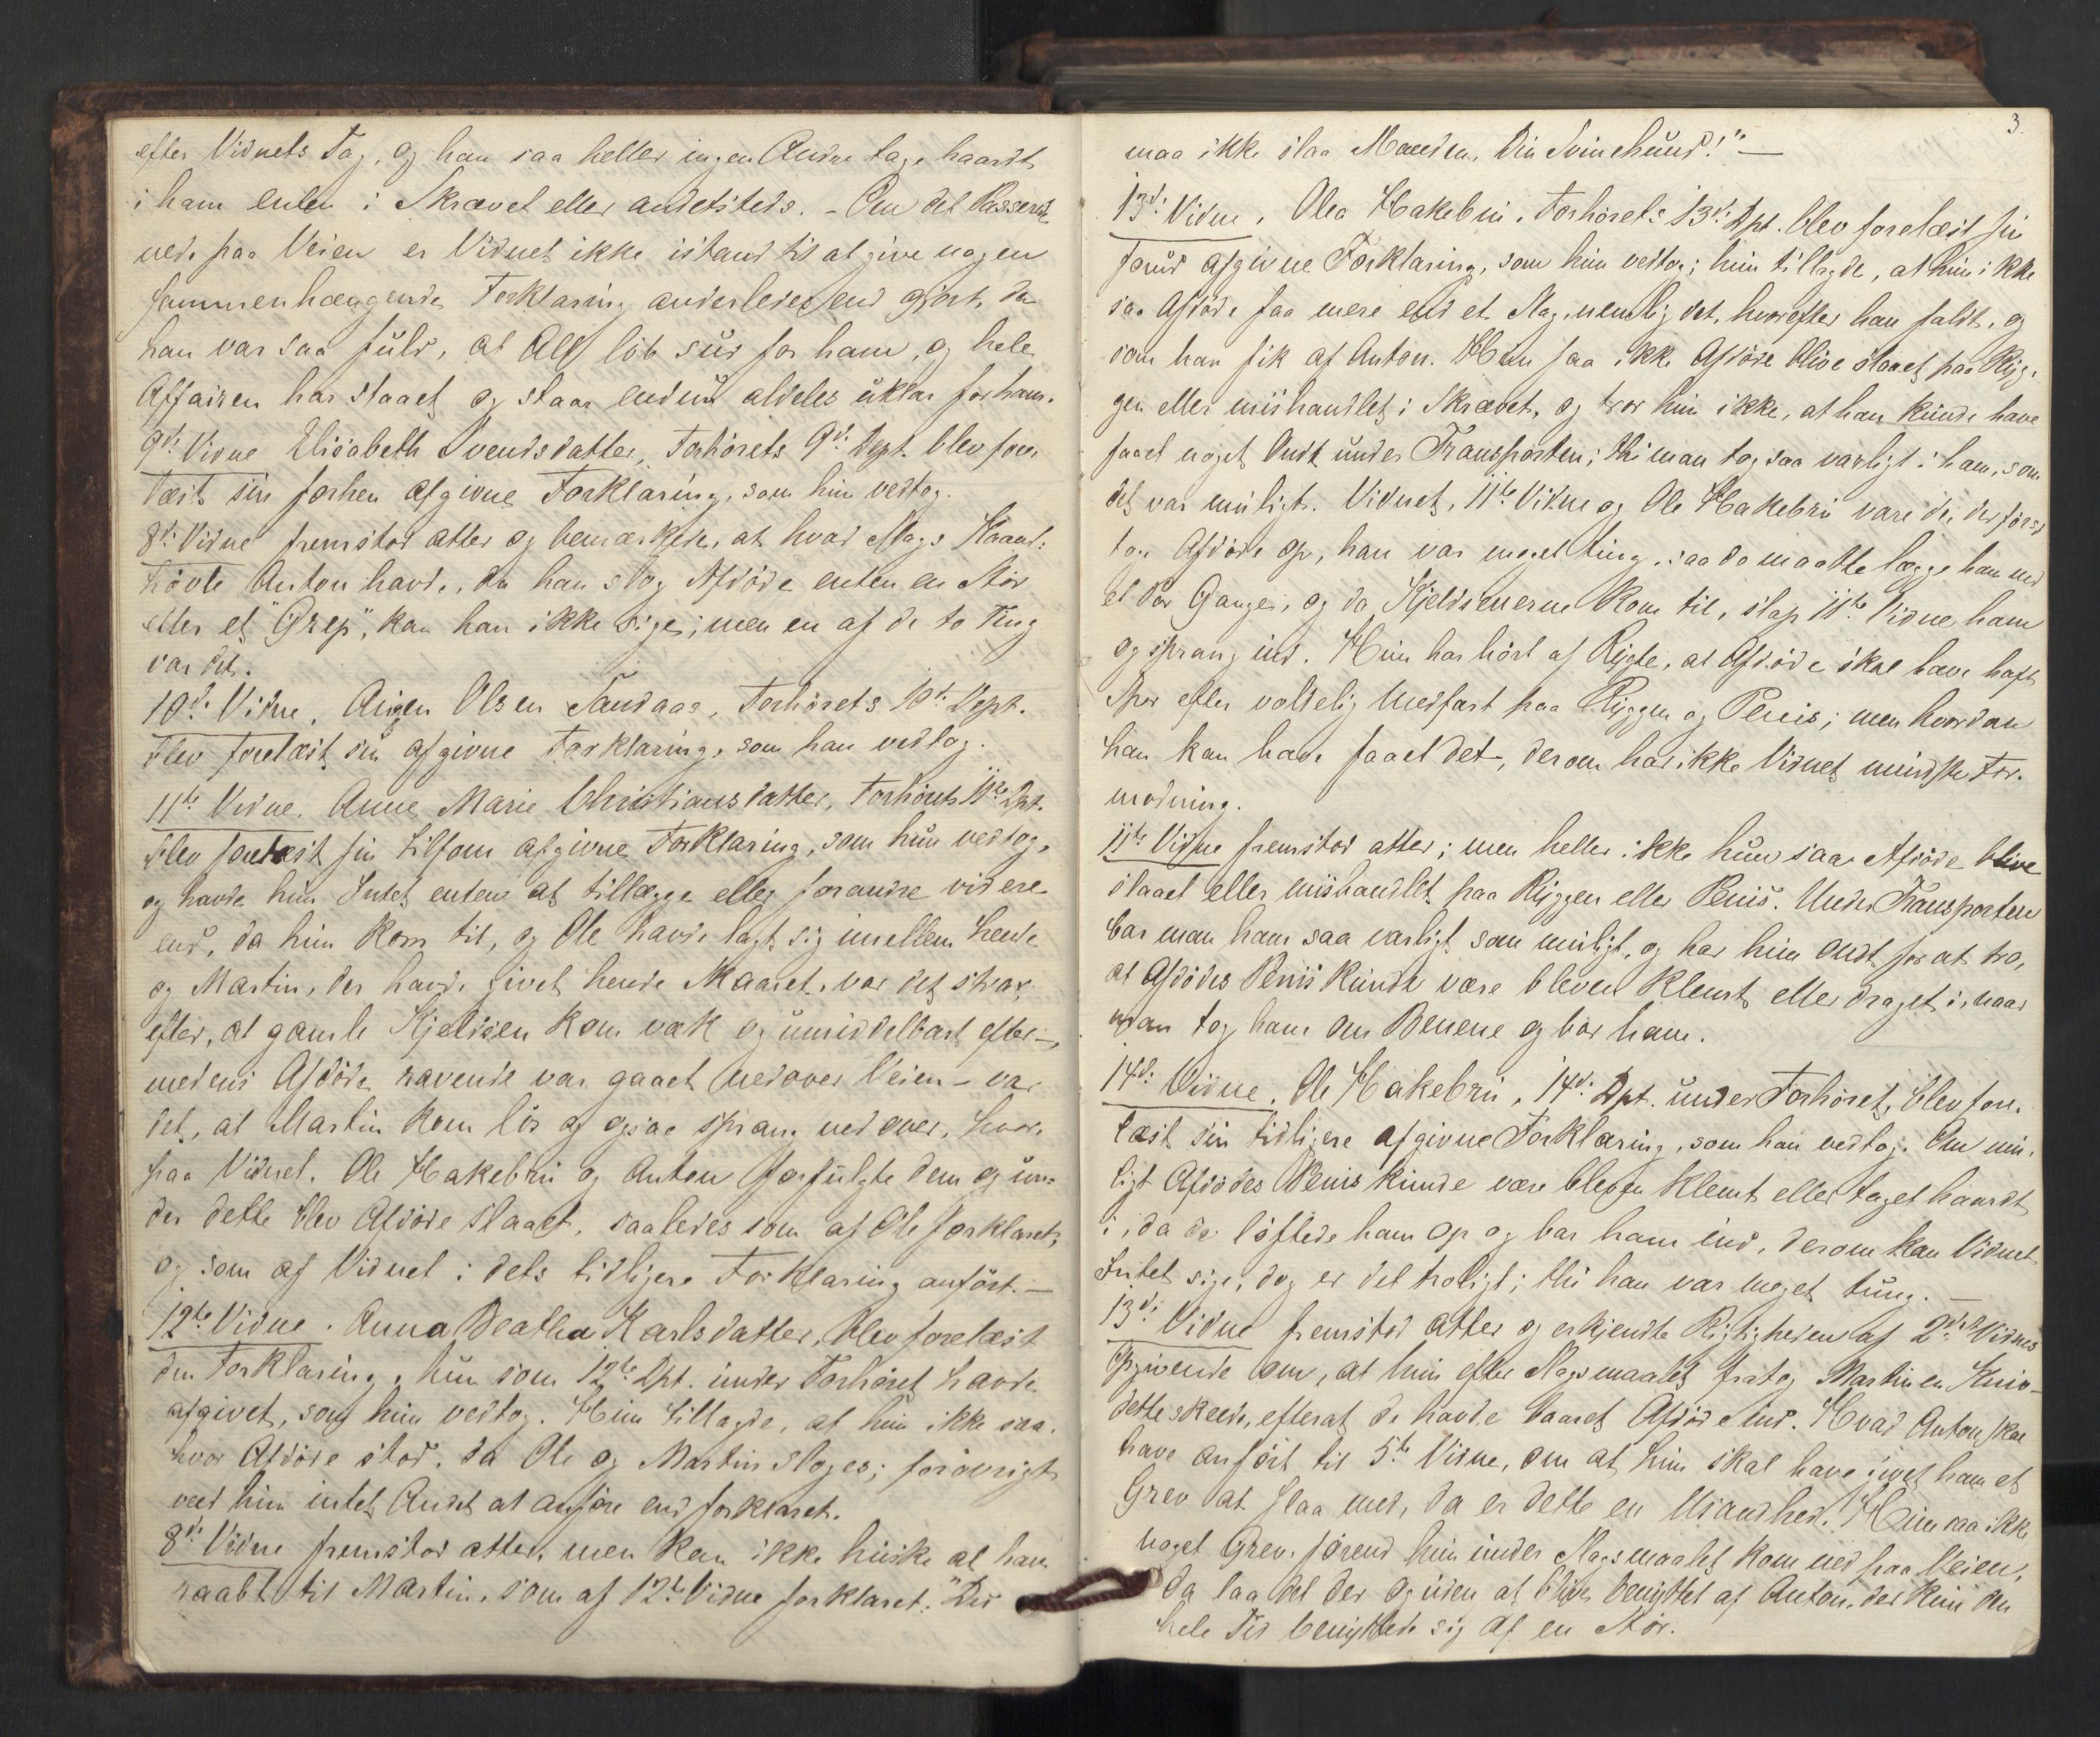 efter Vidnets Tag, og han saa heller ingen Andre tage haardt
i ham enten i Skrævet eller andetsteds. - Om det Passerede
nede paa Veien er Vidnet ikke istand til at give nogen
sammenhængende Forklaring anderledes end gjort, da
han var saa fuld, at Alt løb sur for ham, og hele
Affairen har staaet og staar endnu aldeles uklar for ham.
9de Vidne Elisabeth Svendsdatter, Forhørets 9de Dept. blev fore-
læst sin forhen afgivne Forklaring, som hun vedtog.
8de Vidne fremstod atter og bemærkede, at hvad Slags Haand-
høvte Anton havde, da han slog Afdøde enten en Stör
eller et "Grep", kan han ikke sige; men en af de to Ting
var det.
10de Vidne, Olsen Sandaas, Forhørets 10de Dept.
blev forelæst sin afgivne Forklaring, som han vedtog.
11te Vidne. Anne Marie Christiansdatter, Forhørets 11te Dpt.
blev forelæst sin tilforn afgivne Forklaring, som hun vedtog,
og havde hun Intet enten at tillægge eller forandre videre
end, da hun kom til, og Ole havde lagt sig imellem hende
og Martin, der havde givet hende Skaaret, var det strax
efter, at gamle Kjeldsen kom væk og umiddelbart efter -,
medens Afdøde ravende var gaaet nedover Veien - var
det, at Martin kom løs og ogsaa sprang nedover, hvor-
paa Vidnet, Ole Hakebru og Anton forfulgte dem og un-
der dette blev Afdøde slaaet, saaledes som af Ole forklaret,
og som af Vidnet i dets tidligere Forklaring anført. -
12te Vidne. Anna Beatha Karlsdatter, blev forelæst
den Forklaring, hun som 12te Dpt. under Forhøret havde
afgivet, som hun vedtog. Hun tillagde, at hun ikke saa,
hvor Afdøde stod, da Ole og Martin sloges; forøvrigt
ved hun intet Andet at anføre end forklaret.
8de Vidne fremstod atter, men kan ikke huske at have
raabt til Martin, som af 12te Vidne forklaret: "Du
3.
maa ikke slaa Manden, Din Svinehund!" -
13de Vidne, Olea Hakebru, Forhørets 13de Dpt. blev forelæst sin
forud afgivne Forklaring, som hun vedtog; hun tillagde, at hun ikke
saa Afdøde faa mere end et Slag, nemlig det, hvorefter han faldt, og
som han fik af Anton. Hun saa ikke Afdøde blive slaaet paa Ryg-
gen eller mishandlet i Skrævet, og tror hun ikke, at han kunde have
faaet noget Ondt under Transporten; thi man tog saa varligt i ham, som
det var muligt. Vidnet, 11te Vidne og Ole Hakebru vare de, der først
tog Afdøde op, han var meget tung, saa de maatte lægge ham ned
et Par Gange, og da Kjeldsenerne kom til, slap 11te Vidne ham
og sprang ind. Hun har hørt af Rygte, at Afdøde skal have haft
Spor efter voldelig Medfart paa Ryggen og Penis; men hvordan
han kan have faaet det -, derom har ikke Vidnet mindste For-
modning.
11te Vidne fremstod atter; men heller ikke hun saa Afdøde blive
slaaet eller mishandlet paa Ryggen eller Penis. Under Transporten
bar man ham saa varligt som muligt, og har hun ondt for at tro,
at Afdødes Penis kunde være bleven klemt eller draget i, naar
man tog ham om Benene og bar ham.
14de Vidne, Ole Hakebru, 14de Dpt. under Forhøret, blev fore-
læst sin tidligere afgivne Forklaring, som han vedtog. Om mu-
ligt Afdødes Penis kunde være bleven klemt eller taget haardt
i, da de løftede ham op og bar ham ind, derom kan Vidnet
Intet sige, dog er det troligt; thi han var meget tung. -
13de Vidne fremstod atter og erkjendte Rigtigheden af 2det Vidnes
Opgivende om, at hun efter Slagsmaalet fratog Martin en Kniv -
dette skede, efterat de havde baaret Afdøde ind. Hvad Anton skal
have anført til 5te Vidne, om at hun skal have givet ham et
Grev at slaa med, da er dette en Usandhed. Hun saa ikke
noget Grev, førend hun under Slagsmaalet kom ned paa Veien,
da laa det der og uden at blive benyttet af Anton, der kun den
hele Tid benyttede sig af en Stör.